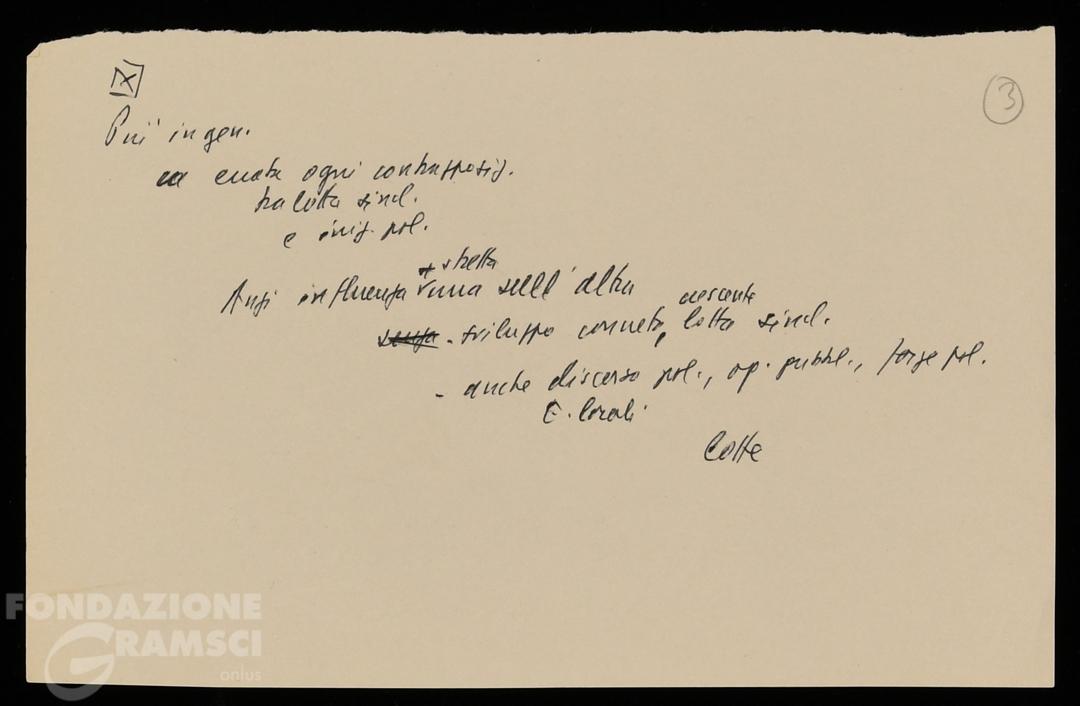 [X]
3
Più in gen.
va evitata ogni contrapposiz.
tra lotta sind.
e iniz. pol.
+ stretta
Anzi influenza una sull'altra
crescente
senza - sviluppo concreto, lotta sind.
- anche discorso pol., op. pubbl., forze pol.
E. locali
Lotte
FONDAZIONE
GRAMSCI
onlus